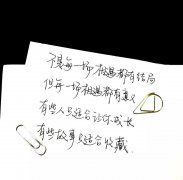 不是每一场相遇都有结局
但每一场相遇都有意义
有些人只适合让你成长
有些故事只适合收藏